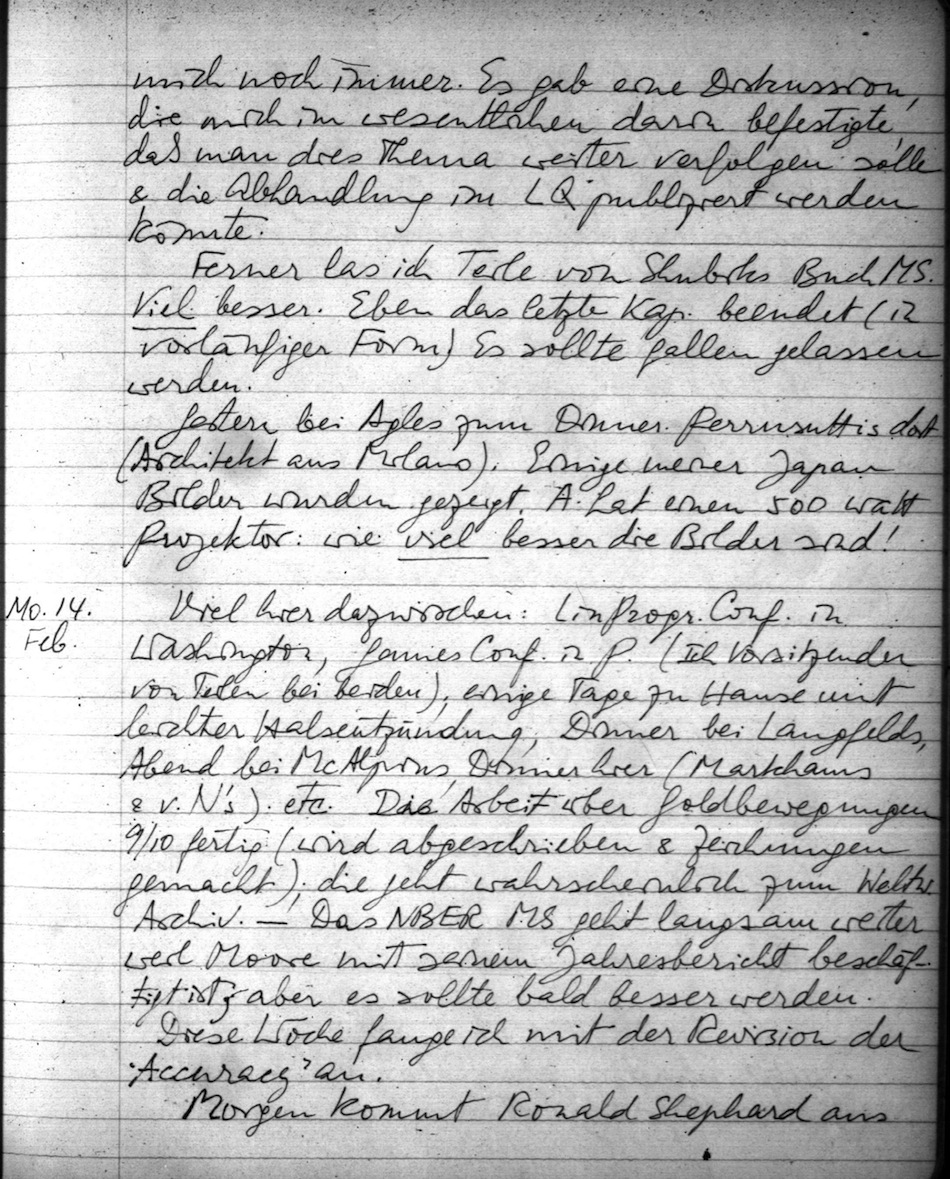 mich noch immer. Es gab eine Diskussion,
die mich im wesentlichen darin befestigte,
daß man dies Thema weiter verfolgen solle
& die Abhandlung im LQ publiziert werden
könnte.
Ferner las ich Teile von Shubiks Buch MS.
Viel besser. Eben das letzte Kap. beendet (in
vorläufiger Form) Es sollte fallen gelassen
werden.
Gestern bei Agles zum Dinner. dort
(Architekt aus Milano). Einige meiner Japan
Bilder wurden gezeigt. A. hat einen 500 watt
Projektor: wie viel besser die Bilder sind!
Mo. 14.
Feb.
Viel hier dazwischen: LinProgr. Conf. in
Washington, Games Conf. in P. (Ich Vorsitzender
von Teilen bei beiden), einige Tage zu Hause mit
leichter Halsentzündung, Dinner bei Langfelds,
Abend bei McAlpins, Dinner hier (Markhams
& v. N's). etc. Die Arbeit über Goldbewegungen
9/10 fertig (wird abgeschrieben & Zeichnungen
gemacht); die geht wahrscheinlich zum Weltw.
Archiv. — Das NBER MS geht langsam weiter
weil Moore mit seinem Jahresbericht beschäf-
tigt ist; aber es sollte bald besser werden.
Diese Woche fange ich mit der Revision der
"Accuracy" an.
Morgen kommt Ronald Shephard aus